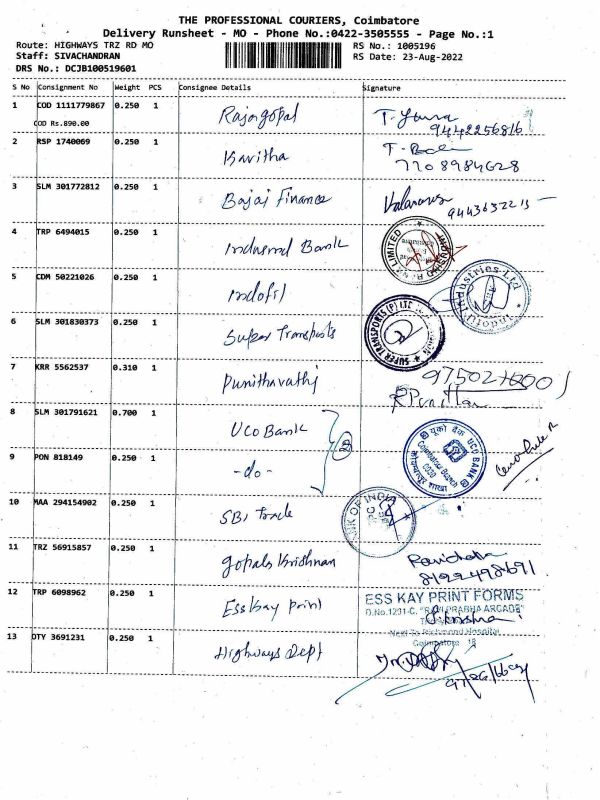 THE PROFESSIONAL COURIERS, Coimbatore
Delivery Runsheet - MO - Phone No.:0422-3505555 - Page No.:1
Route: HIGHWAYS TRZ RD MO
RS No.: 1005196
Staff: SIVACHANDRAN
RS Date: 23-Aug-2022
DRS No.: DCJB100519601
S No Consignment No Weight PCS Consignee Details Signature
1 COD 1111779867 0.250 1 Rajagopal
COD Rs.890.00 9442256816
2 RSP 1740069 0.250 1 Kavitha
7708984628
3 SLM 301772812 0.250 1 Bajaj Finance
4 TRP 6494015 0.250 1 Indusind Bank
5 CDM 50221026 0.250 1 Indofil
Indofil Industries Ltd
6 SLM 301830373 0.250 1 Super Transports
SUPER TRANSPORTS (P) LTD
7 KRR 5562537 0.310 1 Punithavathi
8 SLM 301791621 0.700 1 UCO Bank
यूको बैंक UCO BANK
Coimbatore Branch
9 PON 818149 0.250 1 -do-
10 MAA 294154902 0.250 1 SBI Trade
BANK OF INDIA
11 TRZ 56915857 0.250 1 gopala Krishnan
8122498691
12 TRP 6098962 0.250 1 Ess Kay Print
ESS KAY PRINT FORMS
D.No.1231-C. "RAVI PRABHA ARCADE"
Next To Richmond Hospital
Coimbatore 18
13 OTY 3691231 0.250 1 Highways Dept